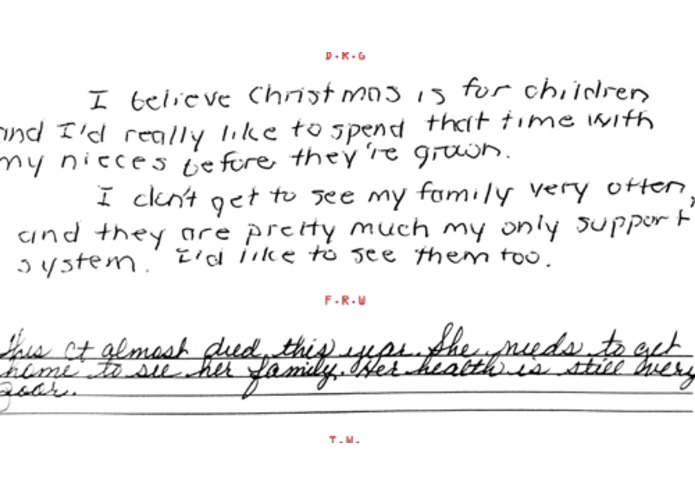 D.K.G
I believe Christmas is for children
and I'd really like to spend that time with
my nieces before they're grown.
I don't get to see my family very often,
and they are pretty much my only support
system. I'd like to see them too.
F.R.W
This ct almost died this year. She needs to get
home to see her family. Her health is still very
poor.
T.W.